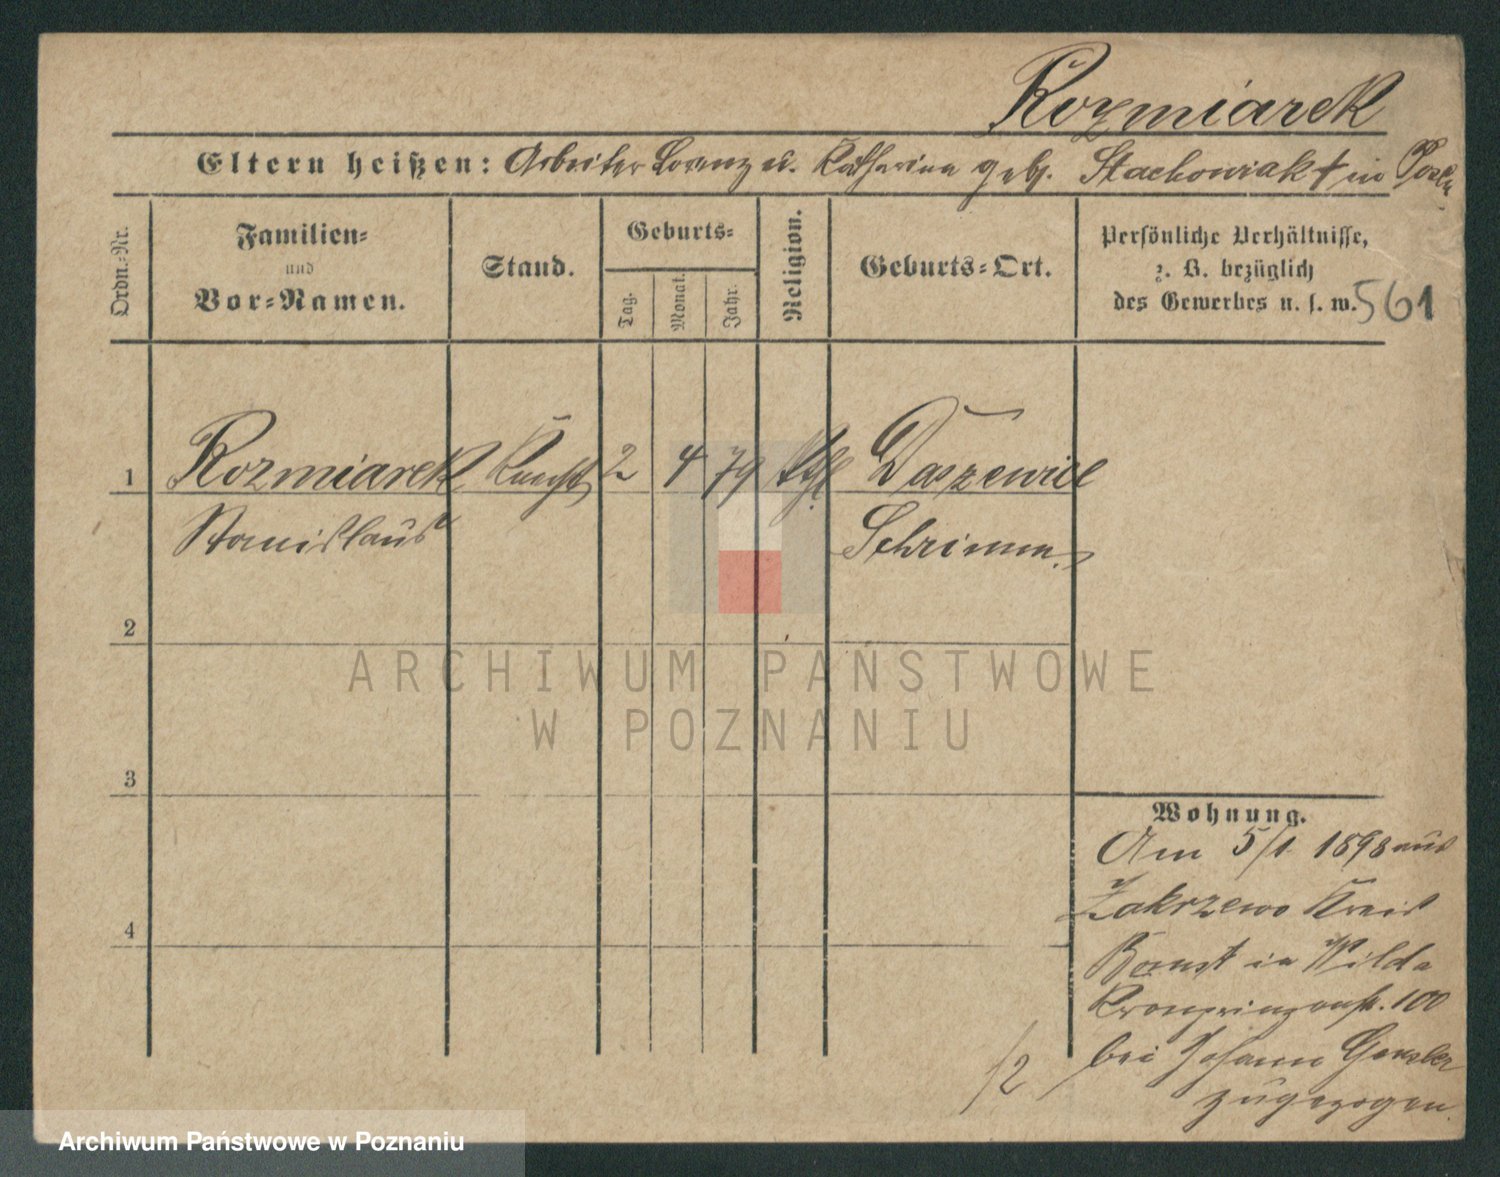 Rozmiarek
Eltern heißen: Arbeiter Lorenz u. Katharina geb. Stachowiak † in Posen
Ordn.-Nr.
Familien-
und
Vor-Namen.
Stand.
Geburts-
Tag.
Monat.
Jahr.
Religion.
Geburts-Ort.
Persönliche Verhältnisse,
z. B. bezüglich
des Gewerbes u. s. w.
561
1 Rozmiarek 2 4 79 kth. Daszewice
Stanislaus Schrimm.
2
3
4
Wohnung.
Am 5/1. 1898 aus
Zakrzewo Kreis
Bomst in Wilda
Kronprinzenstr. 100
bei Johann
zugezogen.
/2
ARCHIWUM PAŃSTWOWE
W POZNANIU
Archiwum Państwowe w Poznaniu